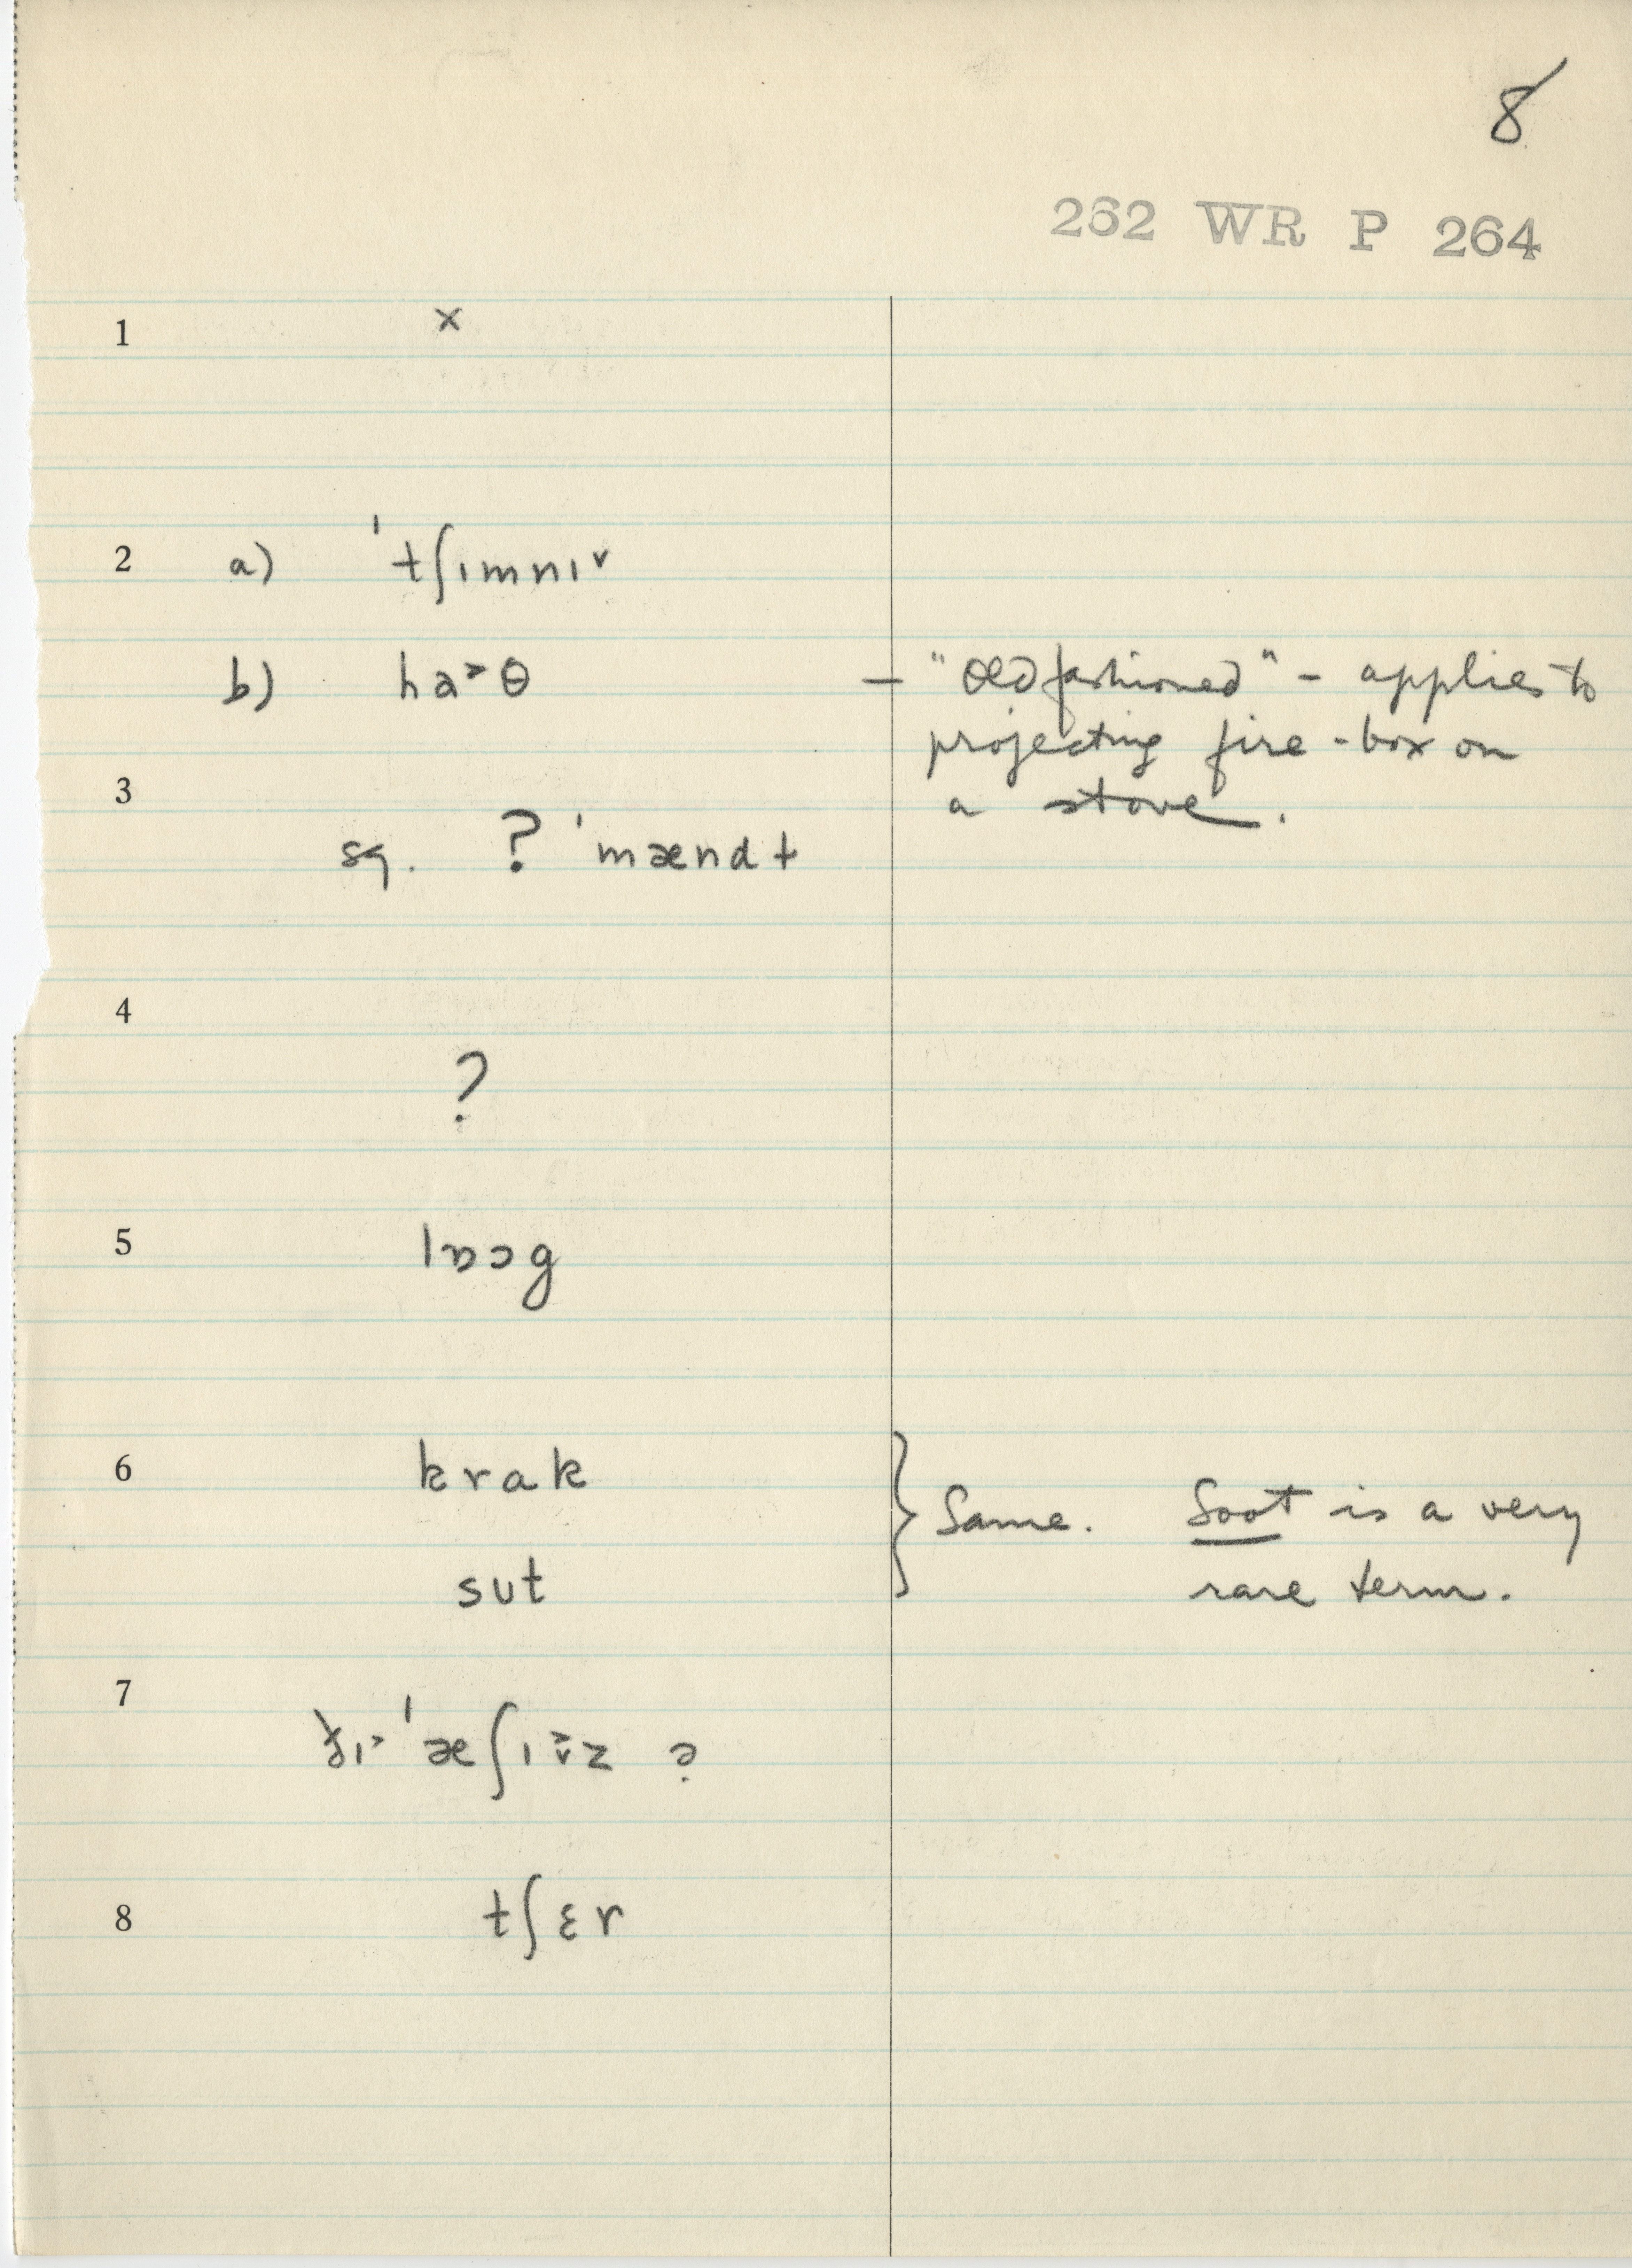 8
262 WR P 264
1 x
2 a) ˈtʃɪmnɪ˅
b) ha˃θ — "Old fashioned" - applies to
projecting fire-box on
a stove.
3
sg. ? ˈmændt
4
?
5 lɒɔg
6 krak
sʊt
} Same. Soot is a very
rare term.
7
ðɪ˃ ˈæʃɪz ?
8 tʃɛr